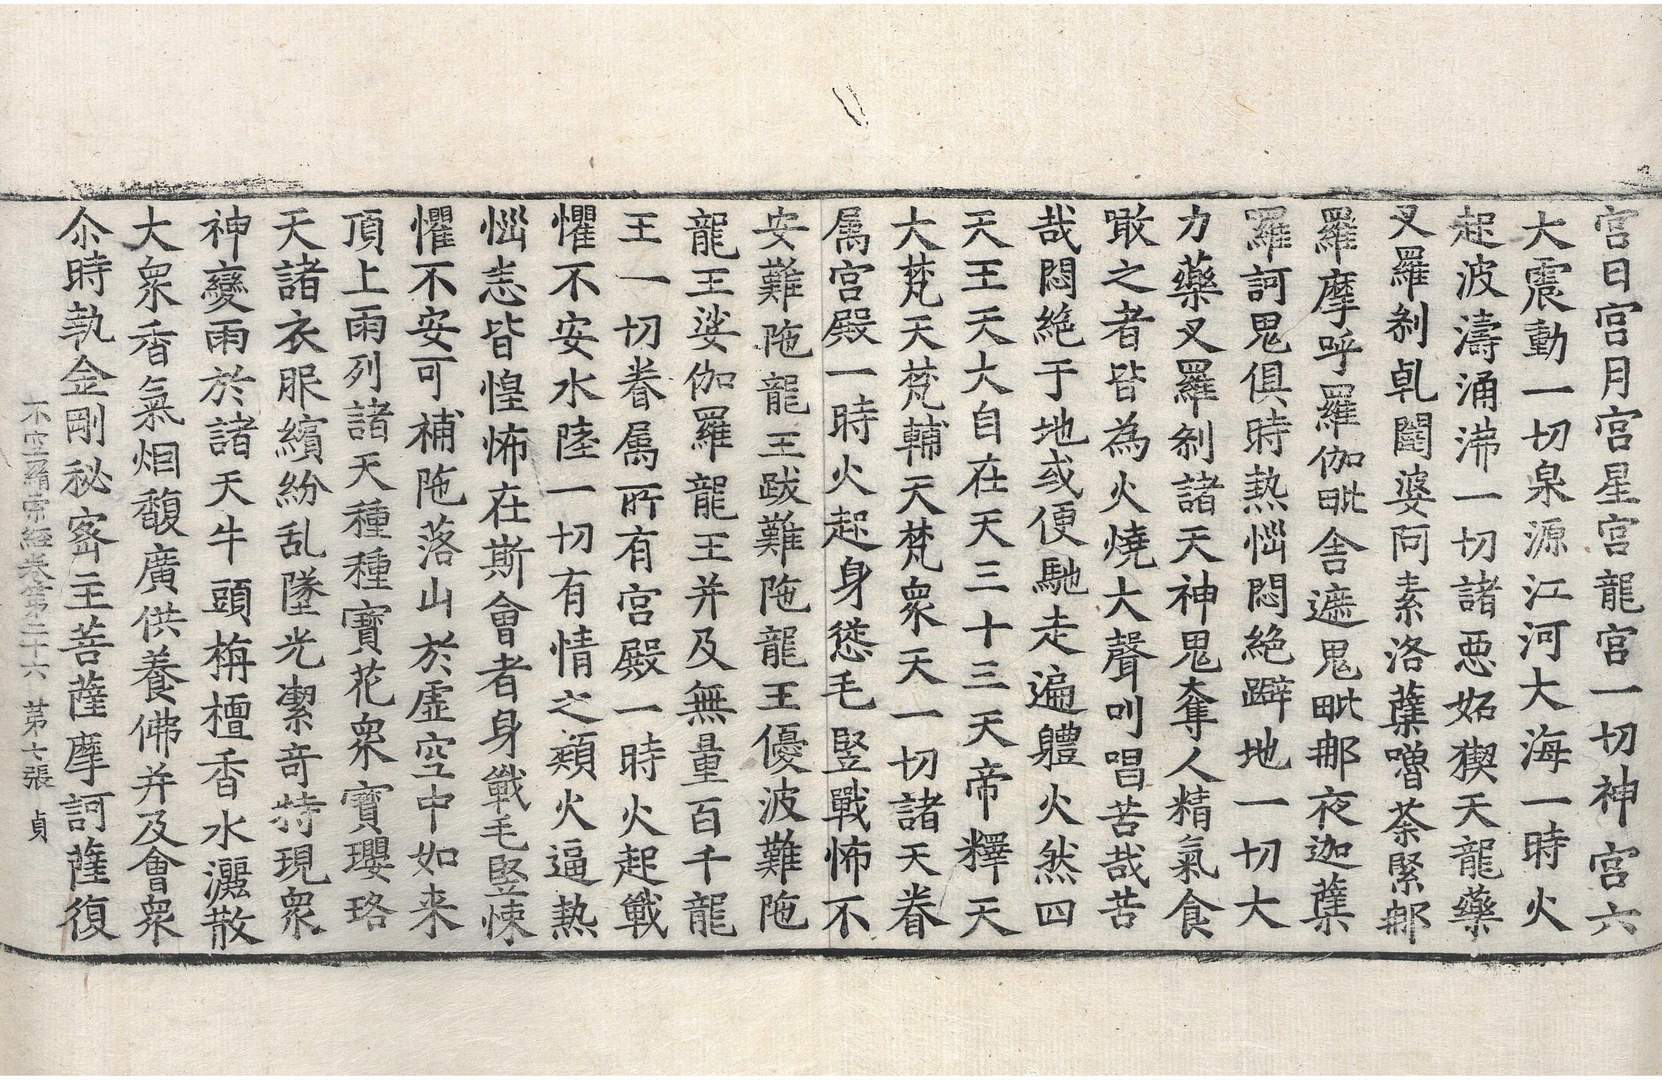 宮日宮月宮星宮龍宮一切神宮六
大震動一切泉源江河大海一時火
起波濤涌沸一切諸惡妬猰天龍藥
叉羅剎乹闥婆阿素洛蘖嚕荼緊那
羅摩呼羅伽毗舍遮鬼毗那夜迦蘖
羅訶鬼俱時熱惱悶絕躃地一切大
力藥叉羅剎諸天神鬼奪人精氣食
噉之者皆為火燒大聲叫唱苦哉苦
哉悶絕于地或便馳走遍體火然四
天王天大自在天三十三天帝釋天
大梵天梵輔天梵衆天一切諸天眷
属宮殿一時火起身慫毛竪戰怖不
安難陁龍王跋難陁龍王優波難陁
龍王娑伽羅龍王并及無量百千龍
王一切眷属所有宮殿一時火起戰
懼不安水陸一切有情之類火逼熱
惱恚皆惶怖在斯會者身戰毛竪悚
懼不安可補陁落山於虛空中如来
頂上雨列諸天種種寶花衆寶瓔珞
天諸衣服繽紛乱墜光潔奇特現衆
神變雨於諸天牛頭栴檀香水灑散
大衆香氣烟馥廣供養佛并及會衆
尒時執金剛秘密主菩薩摩訶薩復
不空羂索経卷第二十六 第七張 貞